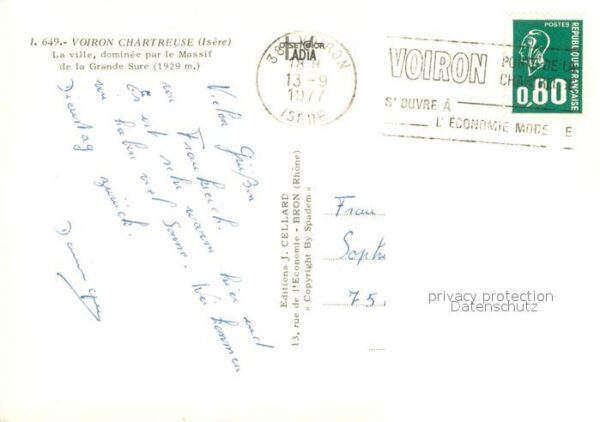 I. 649.- VOIRON CHARTREUSE (Isère)
La ville, dominée par le Massif
de la Grande Sure (1929 m.)
38 VOIRON
13-9
1977
ISERE
VOIRON
S'OUVRE À
L'ÉCONOMIE MODE E
POSTES
REPUBLIQUE FRANÇAISE
0,80
Frankreich.
Es ist sehr warm hier und
wir haben viel Sonne. Wir kommen
Dienstag zurück.
Editions J. CELLARD
13, rue de l'Economie - BRON (Rhône)
" Copyright By Spadem "
Frau
Soph
75
privacy protection
Datenschutz